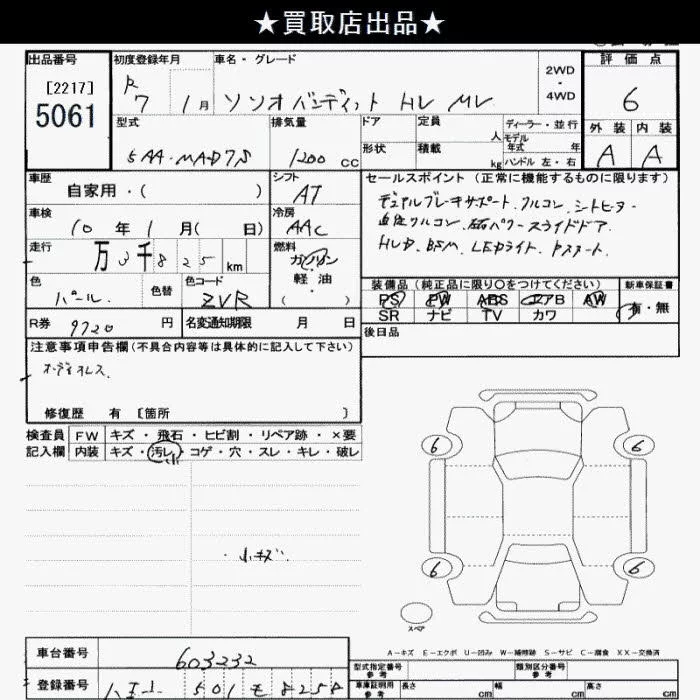 ★買取店出品★
出品番号 初度登録年月 車名・グレード 2WD・4WD 評価点
[2217]
5061
R 7 1月 ソリオバンディット HV MV 6
型式 排気量 ドア 定員 人 ディーラー・並行 外装 内装
モデル年式 年
5AA-MAD7S 1200 cc 形状 積載 kg ハンドル 左・右 A A
車歴 シフト セールスポイント (正常に機能するものに限ります)
自家用・( ) AT デュアルブレーキサポート、クルコン、シートヒーター
車検 冷房
10年1月( 日) AAC 両パワースライドドア
走行 燃料
万3千825km ガソリン HUD、BSM、LEDライト、Pスタート
軽油
色 色替 色コード ( ) 装備品 (純正品に限り○をつけてください) 新車保証書
パール ZVR PS PW ABS エアB AW 有・無
SR ナビ TV カワ
R券 9720円 名変通知期限 月 日 後日品
注意事項申告欄(不具合内容等は具体的に記入して下さい)
オーディオレス
修復歴 有 [箇所 ]
検査員 FW キズ・飛石・ヒビ割・リペア跡・×要
記入欄 内装 キズ・汚レ・コゲ・穴・スレ・キレ・破レ
6 6
・小キズ
6 6
スペア
A−キズ E−エクボ U−凹み W−補修跡 S−サビ C−腐食 XX−交換済
車台番号 603232 型式指定番号 参考 類別区分番号 参考
登録番号 501 モ 8258 車庫証明用 参考 長さ cm 幅 cm 高さ cm